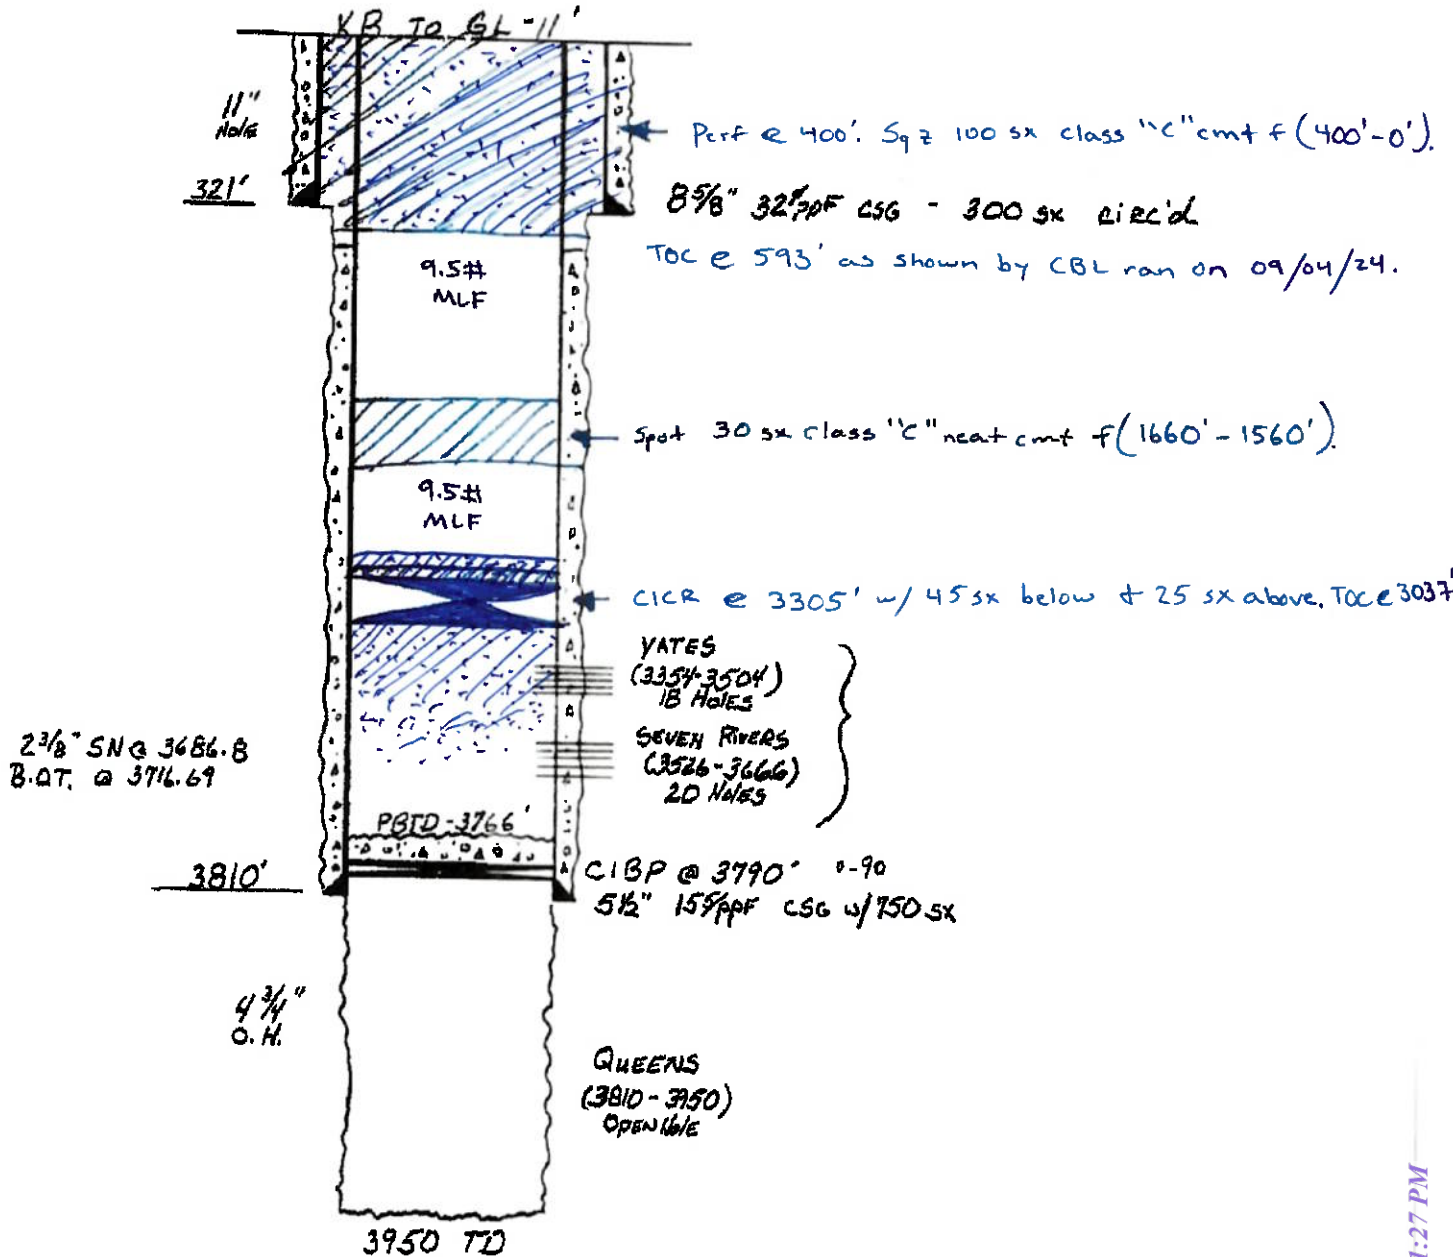 KB TO GL -11'
11"
HOLE
Perf @ 400'. Sqz 100 sx class "C" cmt f (400'-0').
321'
8 5/8" 32#/ppF CSG - 300 sx circ'd
TOC @ 593' as shown by CBL ran on 09/04/24.
9.5#
MLF
Spot 30 sx class "C" neat cmt f(1660'-1560').
9.5#
MLF
CICR @ 3305' w/ 45 sx below + 25 sx above. TOC @ 3037'
YATES
(3354-3504)
18 HOLES
2 3/8" SN @ 3686.8
B.OT. @ 3716.69
SEVEN RIVERS
(3526-3666)
20 HOLES
PBTD-3766'
3810'
CIBP @ 3790'
5 1/2" 15.5/ppF CSG w/750 sx
4 3/4"
O.H.
QUEENS
(3810-3950)
OPEN HOLE
3950 TD
1:27 PM